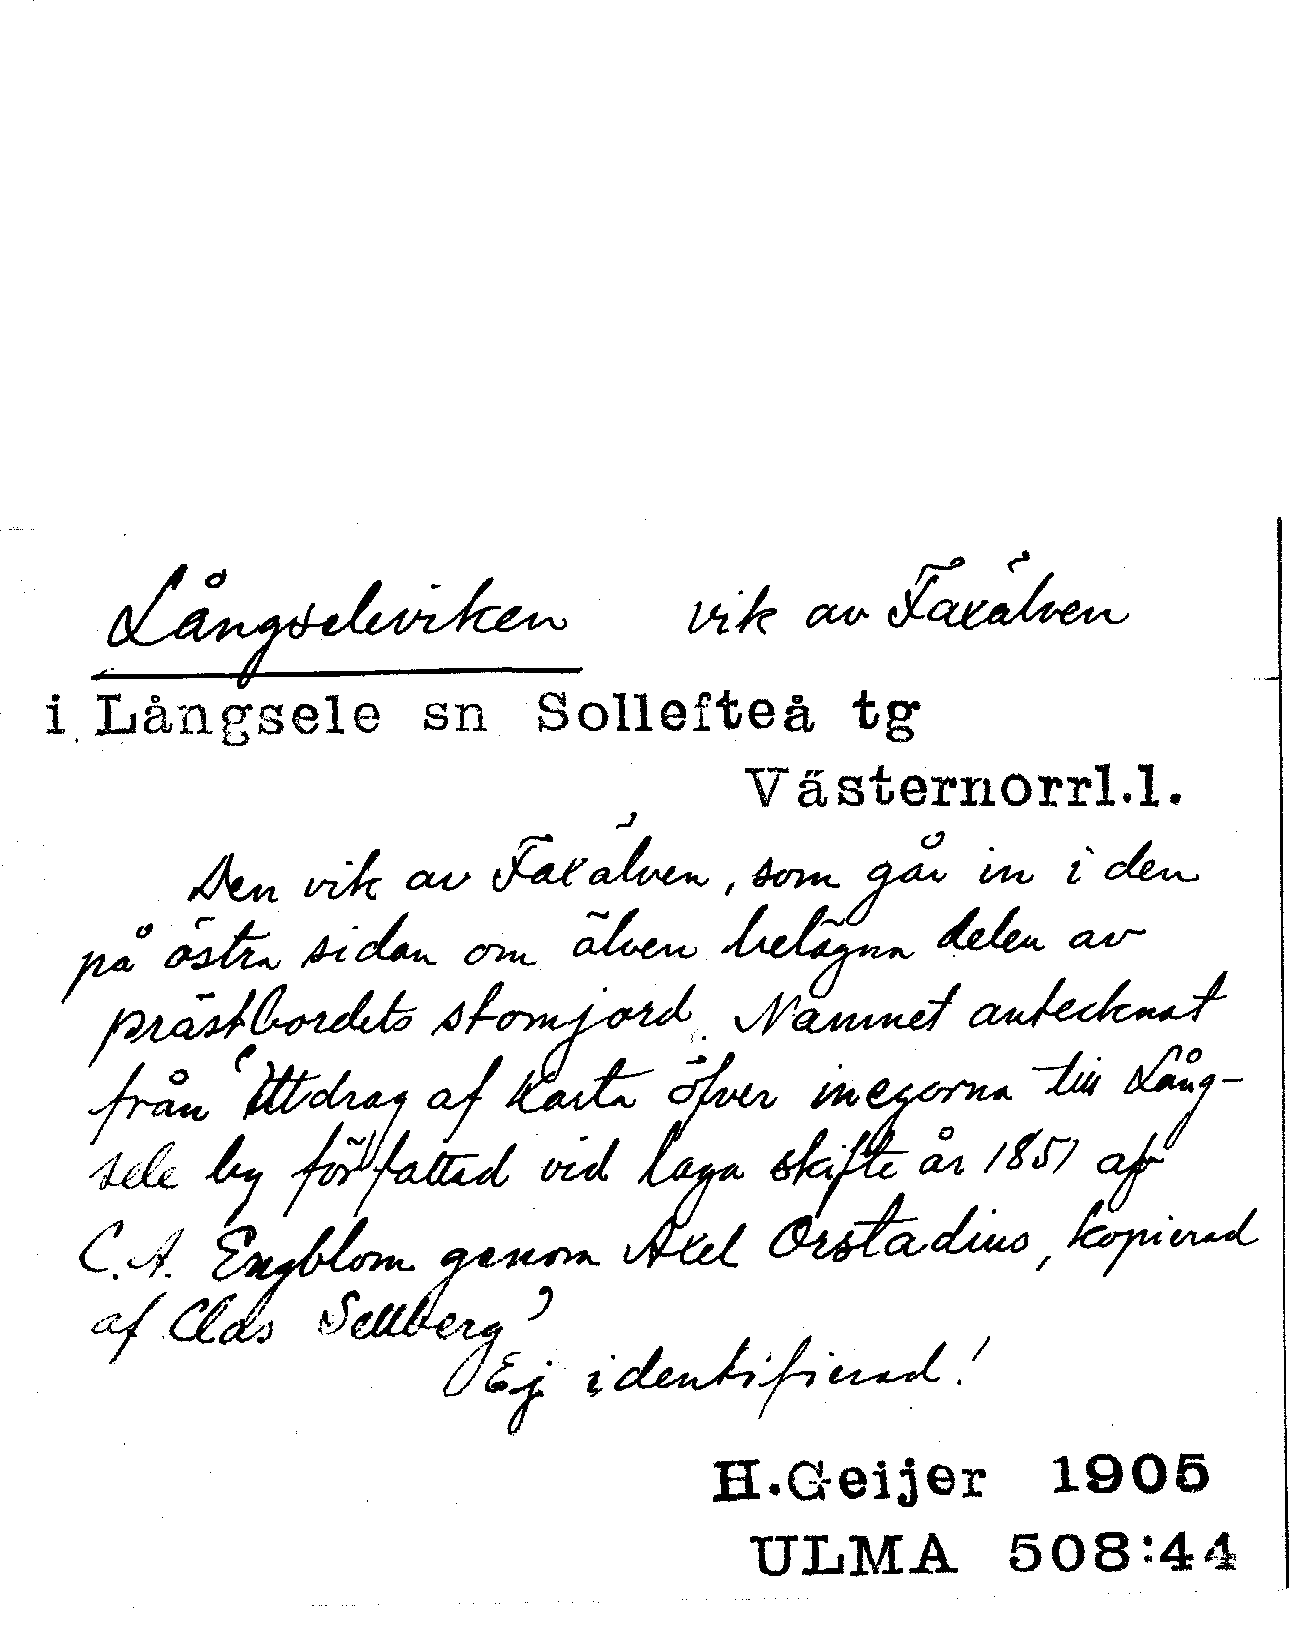 Långseleviken vik av Faxälven
i Långsele sn Sollefteå tg
Västernorrl.l.
Den vik av Faxälven, som går in i den
på östra sidan om älven belägna delen av
prästbordets stomjord. Namnet antecknat
från 'Utdrag af Karta öfver inegorna till Lång-
sele by författad vid laga skifte år 1851 af
C.A. Engblom genom Axel Orstadius, kopierad
af Clas Sellberg'
Ej identifierad!
H.Geijer 1905
ULMA 508:44